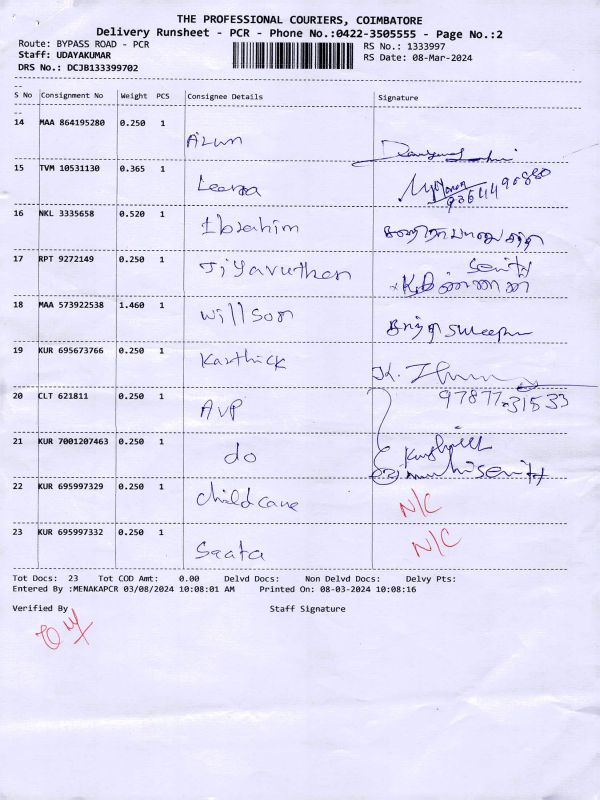 THE PROFESSIONAL COURIERS, COIMBATORE
Delivery Runsheet - PCR - Phone No.:0422-3505555 - Page No.:2
Route: BYPASS ROAD - PCR RS No.: 1333997
Staff: UDAYAKUMAR RS Date: 08-Mar-2024
DRS No.: DCJB133399702
S No Consignment No Weight PCS Consignee Details Signature
14 MAA 864195280 0.250 1
Arun
15 TVM 10531130 0.365 1
Leena
16 NKL 3335658 0.520 1
Ibrahim
17 RPT 9272149 0.250 1
Jiyavuthen
18 MAA 573922538 1.460 1
Willson
19 KUR 695673766 0.250 1
Karthick
20 CLT 621811 0.250 1 97877-31533
AVP
21 KUR 7001207463 0.250 1
do
22 KUR 695997329 0.250 1
Childcare N/C
23 KUR 695997332 0.250 1
N/C
Tot Docs: 23 Tot COD Amt: 0.00 Delvd Docs: Non Delvd Docs: Delvy Pts:
Entered By :MENAKAPCR 03/08/2024 10:08:01 AM Printed On: 08-03-2024 10:08:16
Verified By Staff Signature